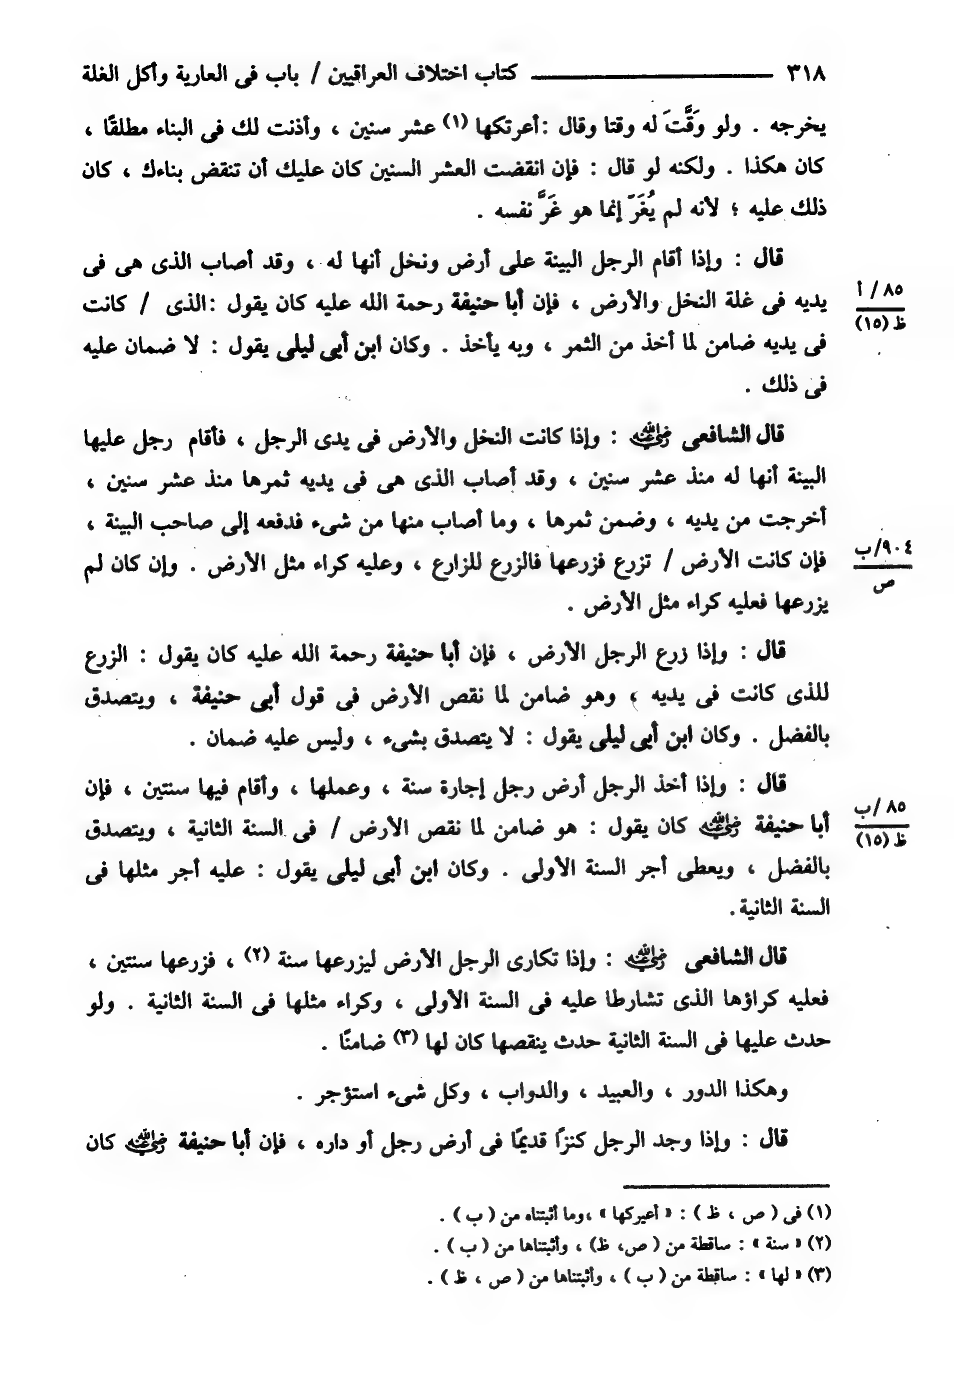 ٣١٨ ــــــ كتاب اختلاف العراقيين / باب فى العارية وأكل الغلة
يخرجه . ولو وَقَّتَ له وقتا وقال : أعرتكها (١) عشر سنين ، وأذنت لك فى البناء مطلقًا ،
كان هكذا . ولكنه لو قال : فإن انقضت العشر السنين كان عليك أن تنقض بناءك ، كان
ذلك عليه ؛ لأنه لم يُغَرَّ إنما هو غَرَّ نفسه .
قال : وإذا أقام الرجل البينة على أرض ونخل أنها له ، وقد أصاب الذى هى فى
يديه فى غلة النخل والأرض ، فإن أبا حنيفة رحمة الله عليه كان يقول : الذى / كانت
٨٥ / أ
ظ (١٥)
فى يديه ضامن لما أخذ من الثمر ، وبه يأخذ . وكان ابن أبى ليلى يقول : لا ضمان عليه
فى ذلك .
قال الشافعى رضي الله عنه : وإذا كانت النخل والأرض فى يدى الرجل ، فأقام رجل عليها
البينة أنها له منذ عشر سنين ، وقد أصاب الذى هى فى يديه ثمرها منذ عشر سنين ،
أخرجت من يديه ، وضمن ثمرها ، وما أصاب منها من شىء فدفعه إلى صاحب البينة ،
فإن كانت الأرض / تزرع فزرعها فالزرع للزارع ، وعليه كراء مثل الأرض . وإن كان لم
٩٠٤/ب
ص
يزرعها فعليه كراء مثل الأرض .
قال : وإذا زرع الرجل الأرض ، فإن أبا حنيفة رحمة الله عليه كان يقول : الزرع
للذى كانت فى يديه ، وهو ضامن لما نقص الأرض فى قول أبى حنيفة ، ويتصدق
بالفضل . وكان ابن أبى ليلى يقول : لا يتصدق بشىء ، وليس عليه ضمان .
قال : وإذا أخذ الرجل أرض رجل إجارة سنة ، وعملها ، وأقام فيها سنتين ، فإن
أبا حنيفة رضي الله عنه كان يقول : هو ضامن لما نقص الأرض / فى السنة الثانية ، ويتصدق
٨٥ /ب
ظ (١٥)
بالفضل ، ويعطى أجر السنة الأولى . وكان ابن أبى ليلى يقول : عليه أجر مثلها فى
السنة الثانية.
قال الشافعى رضي الله عنه : وإذا تكارى الرجل الأرض ليزرعها سنة (٢) ، فزرعها سنتين ،
فعليه كراؤها الذى تشارطا عليه فى السنة الأولى ، وكراء مثلها فى السنة الثانية . ولو
حدث عليها فى السنة الثانية حدث ينقصها كان لها (٣) ضامنًا .
وهكذا الدور ، والعبيد ، والدواب ، وكل شىء استؤجر .
قال : وإذا وجد الرجل كنزًا قديمًا فى أرض رجل أو داره ، فإن أبا حنيفة رضي الله عنه كان
(١) فى ( ص ، ظ ) : « أعيركها » ،وما أثبتناه من ( ب ) .
(٢) « سنة » : ساقطة من ( ص، ظ) ، وأثبتناها من ( ب ) .
(٣) « لها » : ساقطة من ( ب ) ، وأثبتناها من ( ص ، ظ ) .